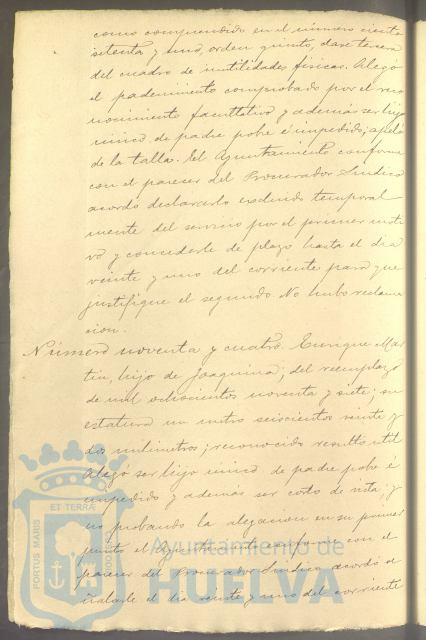 como comprendido en el número ciento
setenta y uno, orden quinto, clase tercera
del cuadro de inutilidades físicas. Alegó
el padecimiento comprobado por el reco
nocimiento facultativo y además ser hijo
único de padre pobre é impedido; apeló
de la talla. El Ayuntamiento conforme
con el parecer del Procurador Sindico
acordó declararlo excluido temporal
mente del servicio por el primer moti
vo y concederle de plazo hasta el dia
veinte y uno del corriente para que
justifique el segundo. No hubo reclama
cion.
Número noventa y cuatro. Enrique Mar
tin, hijo de Joaquina, del reemplazo
de mil ochocientos noventa y siete; su
estatura un metro seiscientos veinte y
dos milimetros; reconocido resultó útil
Alegó ser hijo único de padre pobre é
impedido y además ser corto de vista: y
no probando la alegacion en su primer
punto el Ayuntamiento conforme con el
parecer del Procurador Sindico acordó se
ñalarle el dia veinte y uno del corriente
PORTUS MARIS ET TERRÆ CUSTODIO
Ayuntamiento de
HUELVA